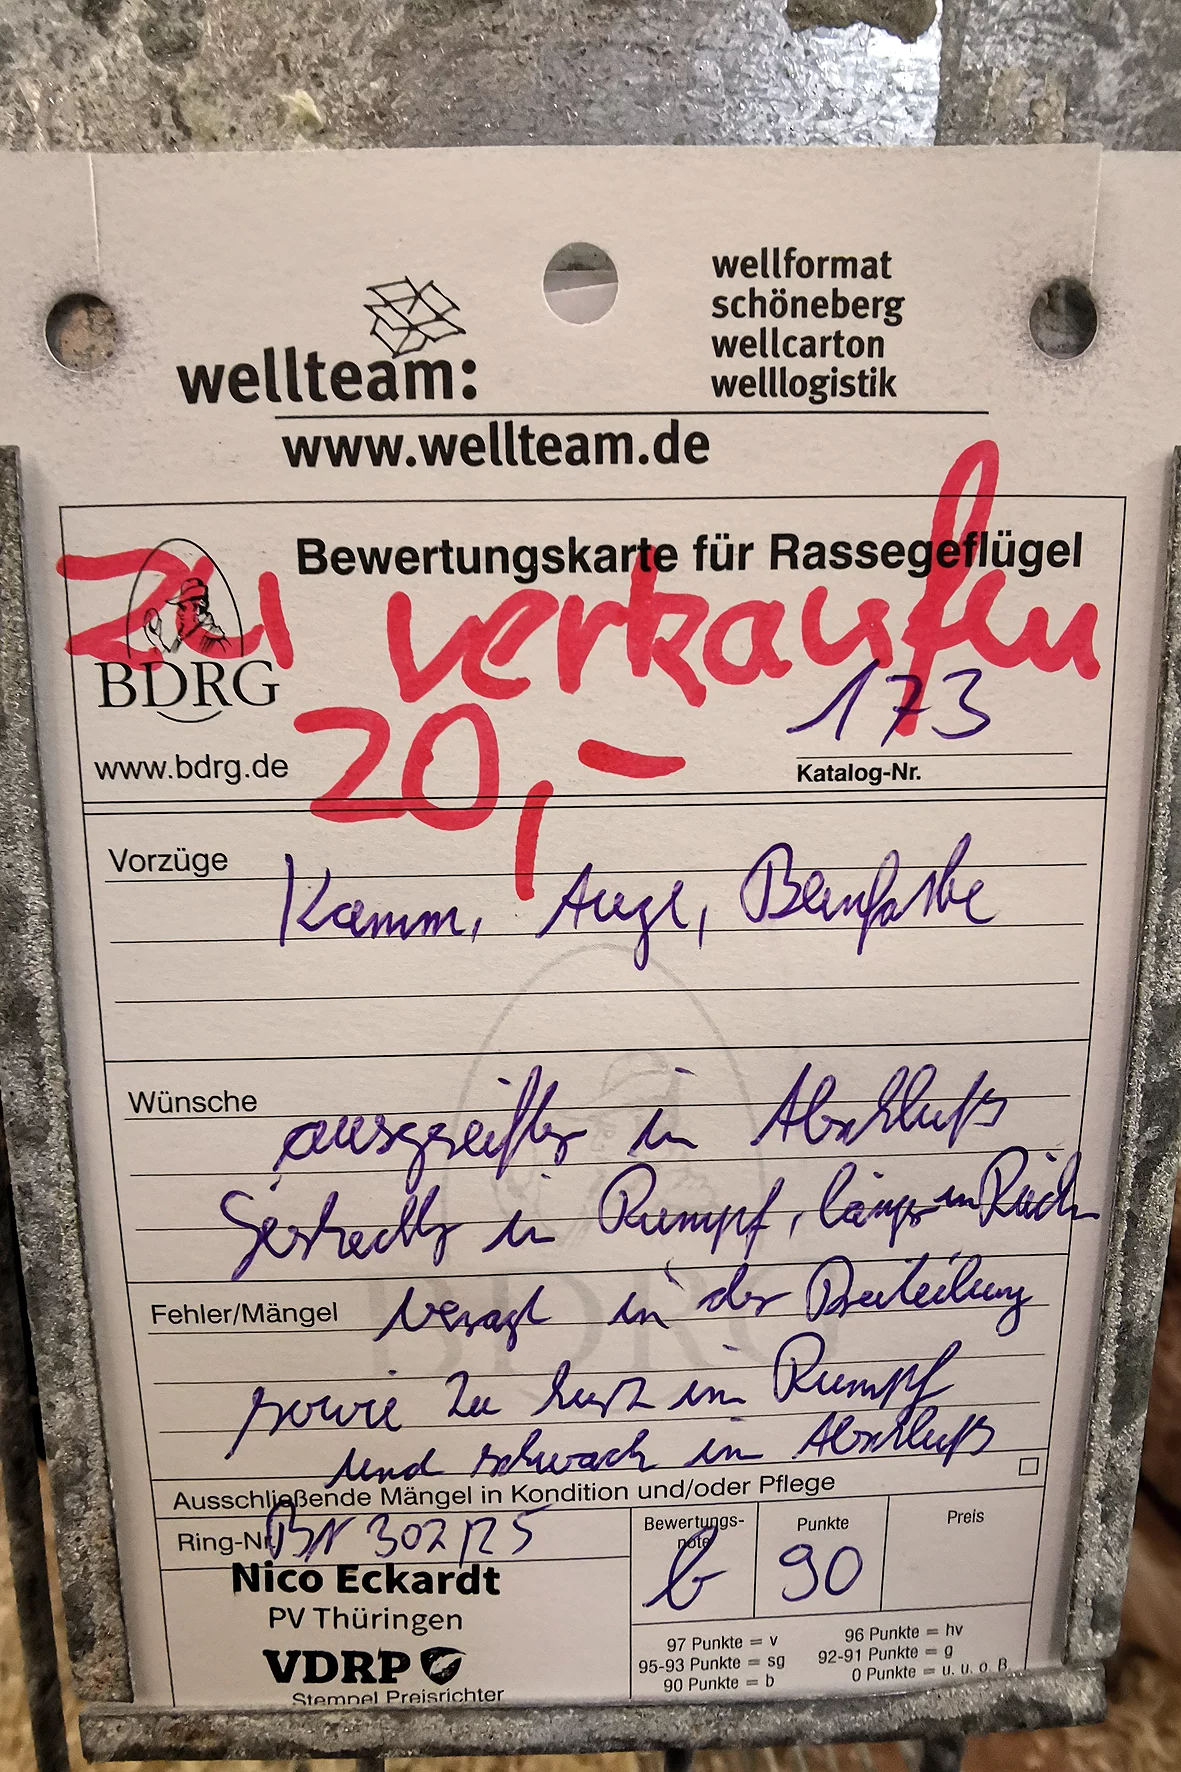 wellteam:
wellformat
schöneberg
wellcarton
welllogistik
www.wellteam.de
Bewertungskarte für Rassegeflügel
Zu verkaufen
BDRG
173
20,-
www.bdrg.de
Katalog-Nr.
Vorzüge
Kamm, Auge, Beinfarbe
Wünsche
ausgereifter im Abschluß
gestreckter im Rumpf, länger im Rücken
Fehler/Mängel
versagt in der Beurteilung
sowie zu kurz im Rumpf
und schwach im Abschluß
Ausschließende Mängel in Kondition und/oder Pflege
Ring-Nr. BN 302/25
Bewertungs-
note
b
Punkte
90
Preis
Nico Eckardt
PV Thüringen
VDRP
Stempel Preisrichter
97 Punkte = v
96 Punkte = hv
95-93 Punkte = sg
92-91 Punkte = g
90 Punkte = b
0 Punkte = u. u. o. B.
BDRG